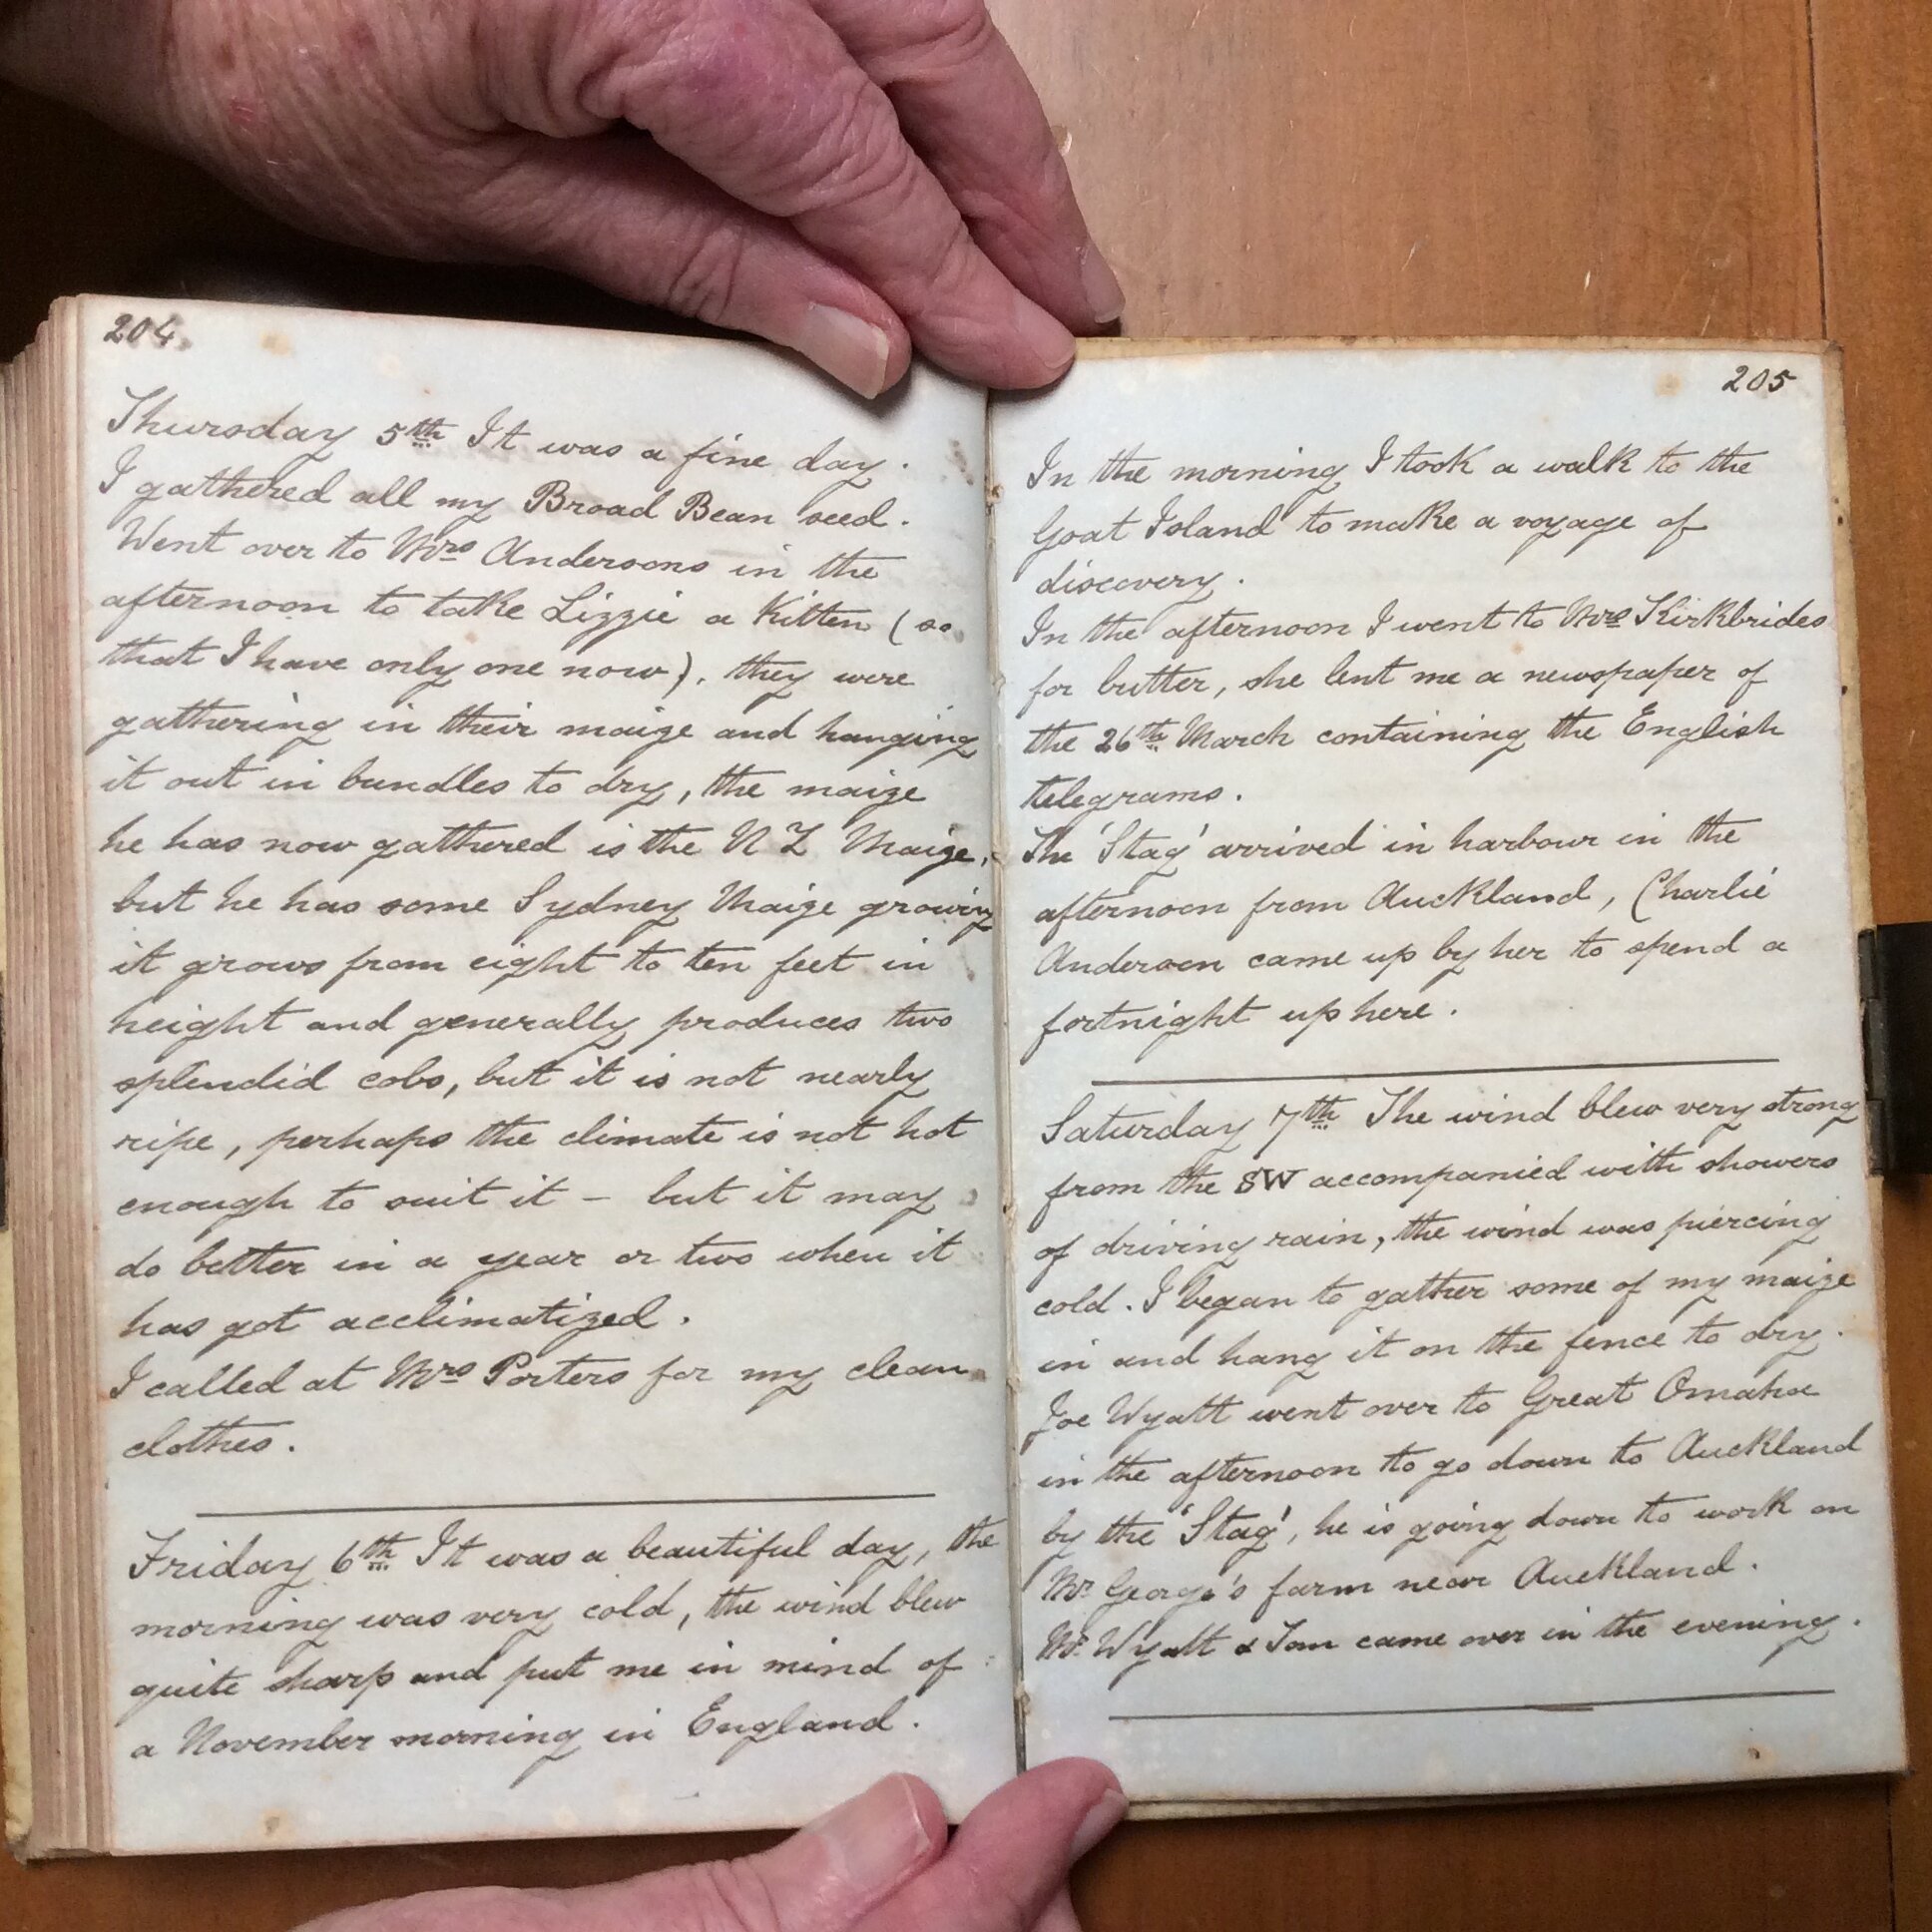 204
Thursday 5th It was a fine day.
I gathered all my Broad Bean seed.
Went over to Mrs Andersons in the
afternoon to take Lizzie a Kitten (so
that I have only one now), they were
gathering in their maize and hanging
it out in bundles to dry, the maize
he has now gathered is the N Z Maize,
but he has some Sydney Maize growing
it grows from eight to ten feet in
height and generally produces two
splendid cobs, but it is not nearly
ripe, perhaps the climate is not hot
enough to suit it – but it may
do better in a year or two when it
has got acclimatized.
I called at Mrs Porters for my clean
clothes.
Friday 6th It was a beautiful day, the
morning was very cold, the wind blew
quite sharp and put me in mind of
a November morning in England.
205
In the morning I took a walk to the
Goat Island to make a voyage of
discovery.
In the afternoon I went to Mrs Kirkbrides
for butter, she lent me a newspaper of
the 26th March containing the English
telegrams.
The 'Stag' arrived in harbour in the
afternoon from Auckland, Charlie
Anderson came up by her to spend a
fortnight up here.
Saturday 7th The wind blew very strong
from the SW accompanied with showers
of driving rain, the wind was piercing
cold. I began to gather some of my maize
in and hang it on the fence to dry.
Joe Wyatt went over to Great Omaha
in the afternoon to go down to Auckland
by the 'Stag', he is going down to work on
Mr George's farm near Auckland.
Mr Wyatt & Tom came over in the evening.